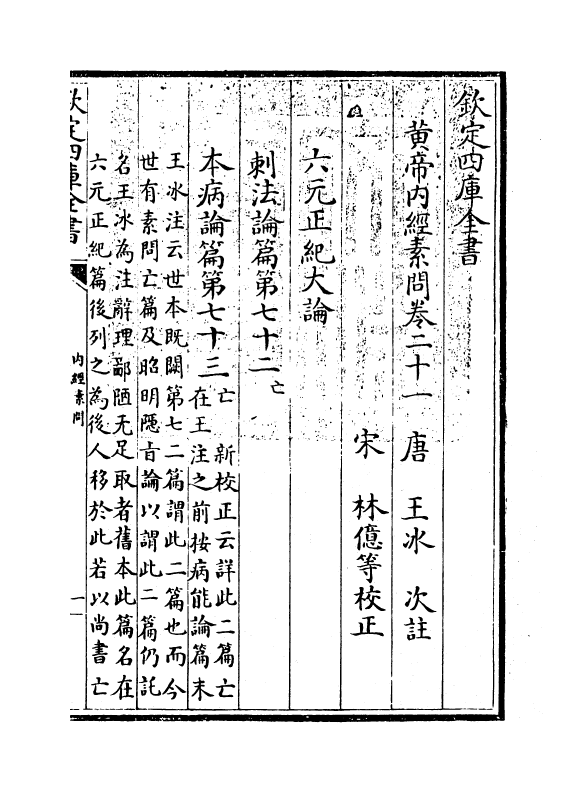 欽定四庫全書
黄帝内經素問卷二十一　唐　王冰　次註
宋　林億等校正
六元正紀大論
刺法論篇第七十二亡
本病論篇第七十三亡　新校正云詳此二篇亡
在王注之前按病能論篇末
王冰注云世本既闕第七二篇謂此二篇也而今
世有素問亡篇及昭明隱㫖論以謂此二篇仍託
名王冰為注辭理鄙陋无足取者舊本此篇名在
六元正紀篇後列之為後人移於此若以尚書亡
欽定四庫全書
内經素問
一